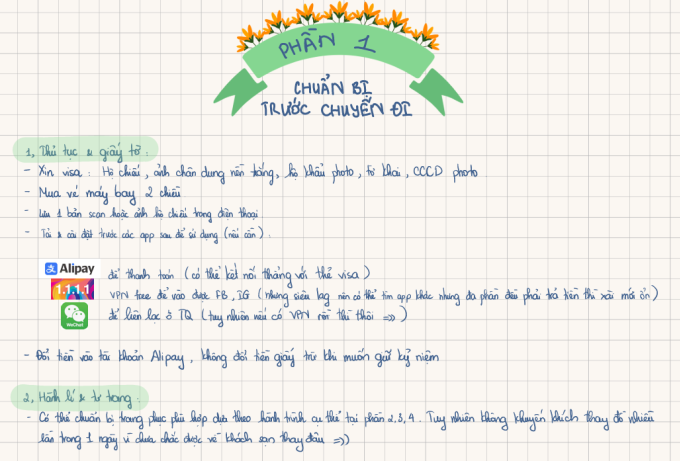 PHẦN 1
CHUẨN BỊ
TRƯỚC CHUYẾN ĐI
1, Thủ tục & giấy tờ :
- Xin visa : Hộ chiếu, ảnh chân dung nền trắng, hộ khẩu photo, tờ khai, CCCD photo
- Mua vé máy bay 2 chiều
- Lưu 1 bản scan hoặc ảnh hộ chiếu trong điện thoại
- Tải & cài đặt trước các app sau để sử dụng (nếu cần) :
Alipay để thanh toán (có thể kết nối thẳng với thẻ visa)
1.1.1.1 VPN free để vào được FB, IG (nhưng siêu lag nên có thể tìm app khác nhưng đa phần đều phải trả tiền thì xài mới ổn)
WeChat để liên lạc ở TQ (tuy nhiên nếu có VPN rồi thì thôi =)) )
- Đổi tiền vào tài khoản Alipay, không đổi tiền giấy trừ khi muốn giữ kỷ niệm
2, Hành lí & tư trang :
- Có thể chuẩn bị trang phục phù hợp dựa theo hành trình cụ thể tại phần 2,3,4. Tuy nhiên không khuyến khích thay đồ nhiều
lần trong 1 ngày vì chưa chắc được về khách sạn thay đâu =))